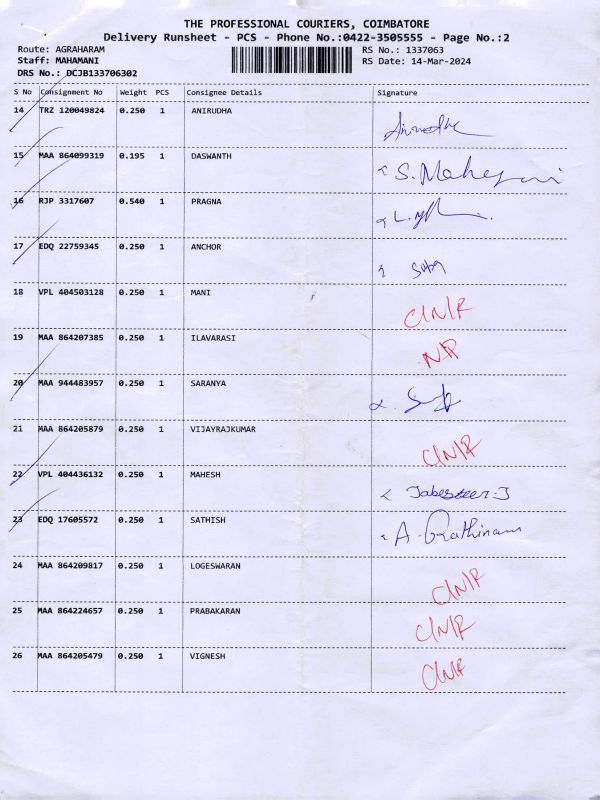 THE PROFESSIONAL COURIERS, COIMBATORE
Delivery Runsheet - PCS - Phone No.:0422-3505555 - Page No.:2
Route: AGRAHARAM RS No.: 1337063
Staff: MAHAMANI RS Date: 14-Mar-2024
DRS No.: DCJB133706302
S No Consignment No Weight PCS Consignee Details Signature
14 TRZ 120049824 0.250 1 ANIRUDHA Anirudha
15 MAA 864099319 0.195 1 DASWANTH S.
16 RJP 3317607 0.540 1 PRAGNA
17 EDQ 22759345 0.250 1 ANCHOR
18 VPL 404503128 0.250 1 MANI C/N/R
19 MAA 864207385 0.250 1 ILAVARASI NP
20 MAA 944483957 0.250 1 SARANYA
21 MAA 864205879 0.250 1 VIJAYRAJKUMAR C/N/R
22 VPL 404436132 0.250 1 MAHESH
23 EDQ 17605572 0.250 1 SATHISH A. Rathinam
24 MAA 864209817 0.250 1 LOGESWARAN C/N/R
25 MAA 864224657 0.250 1 PRABAKARAN C/N/R
26 MAA 864205479 0.250 1 VIGNESH C/N/R